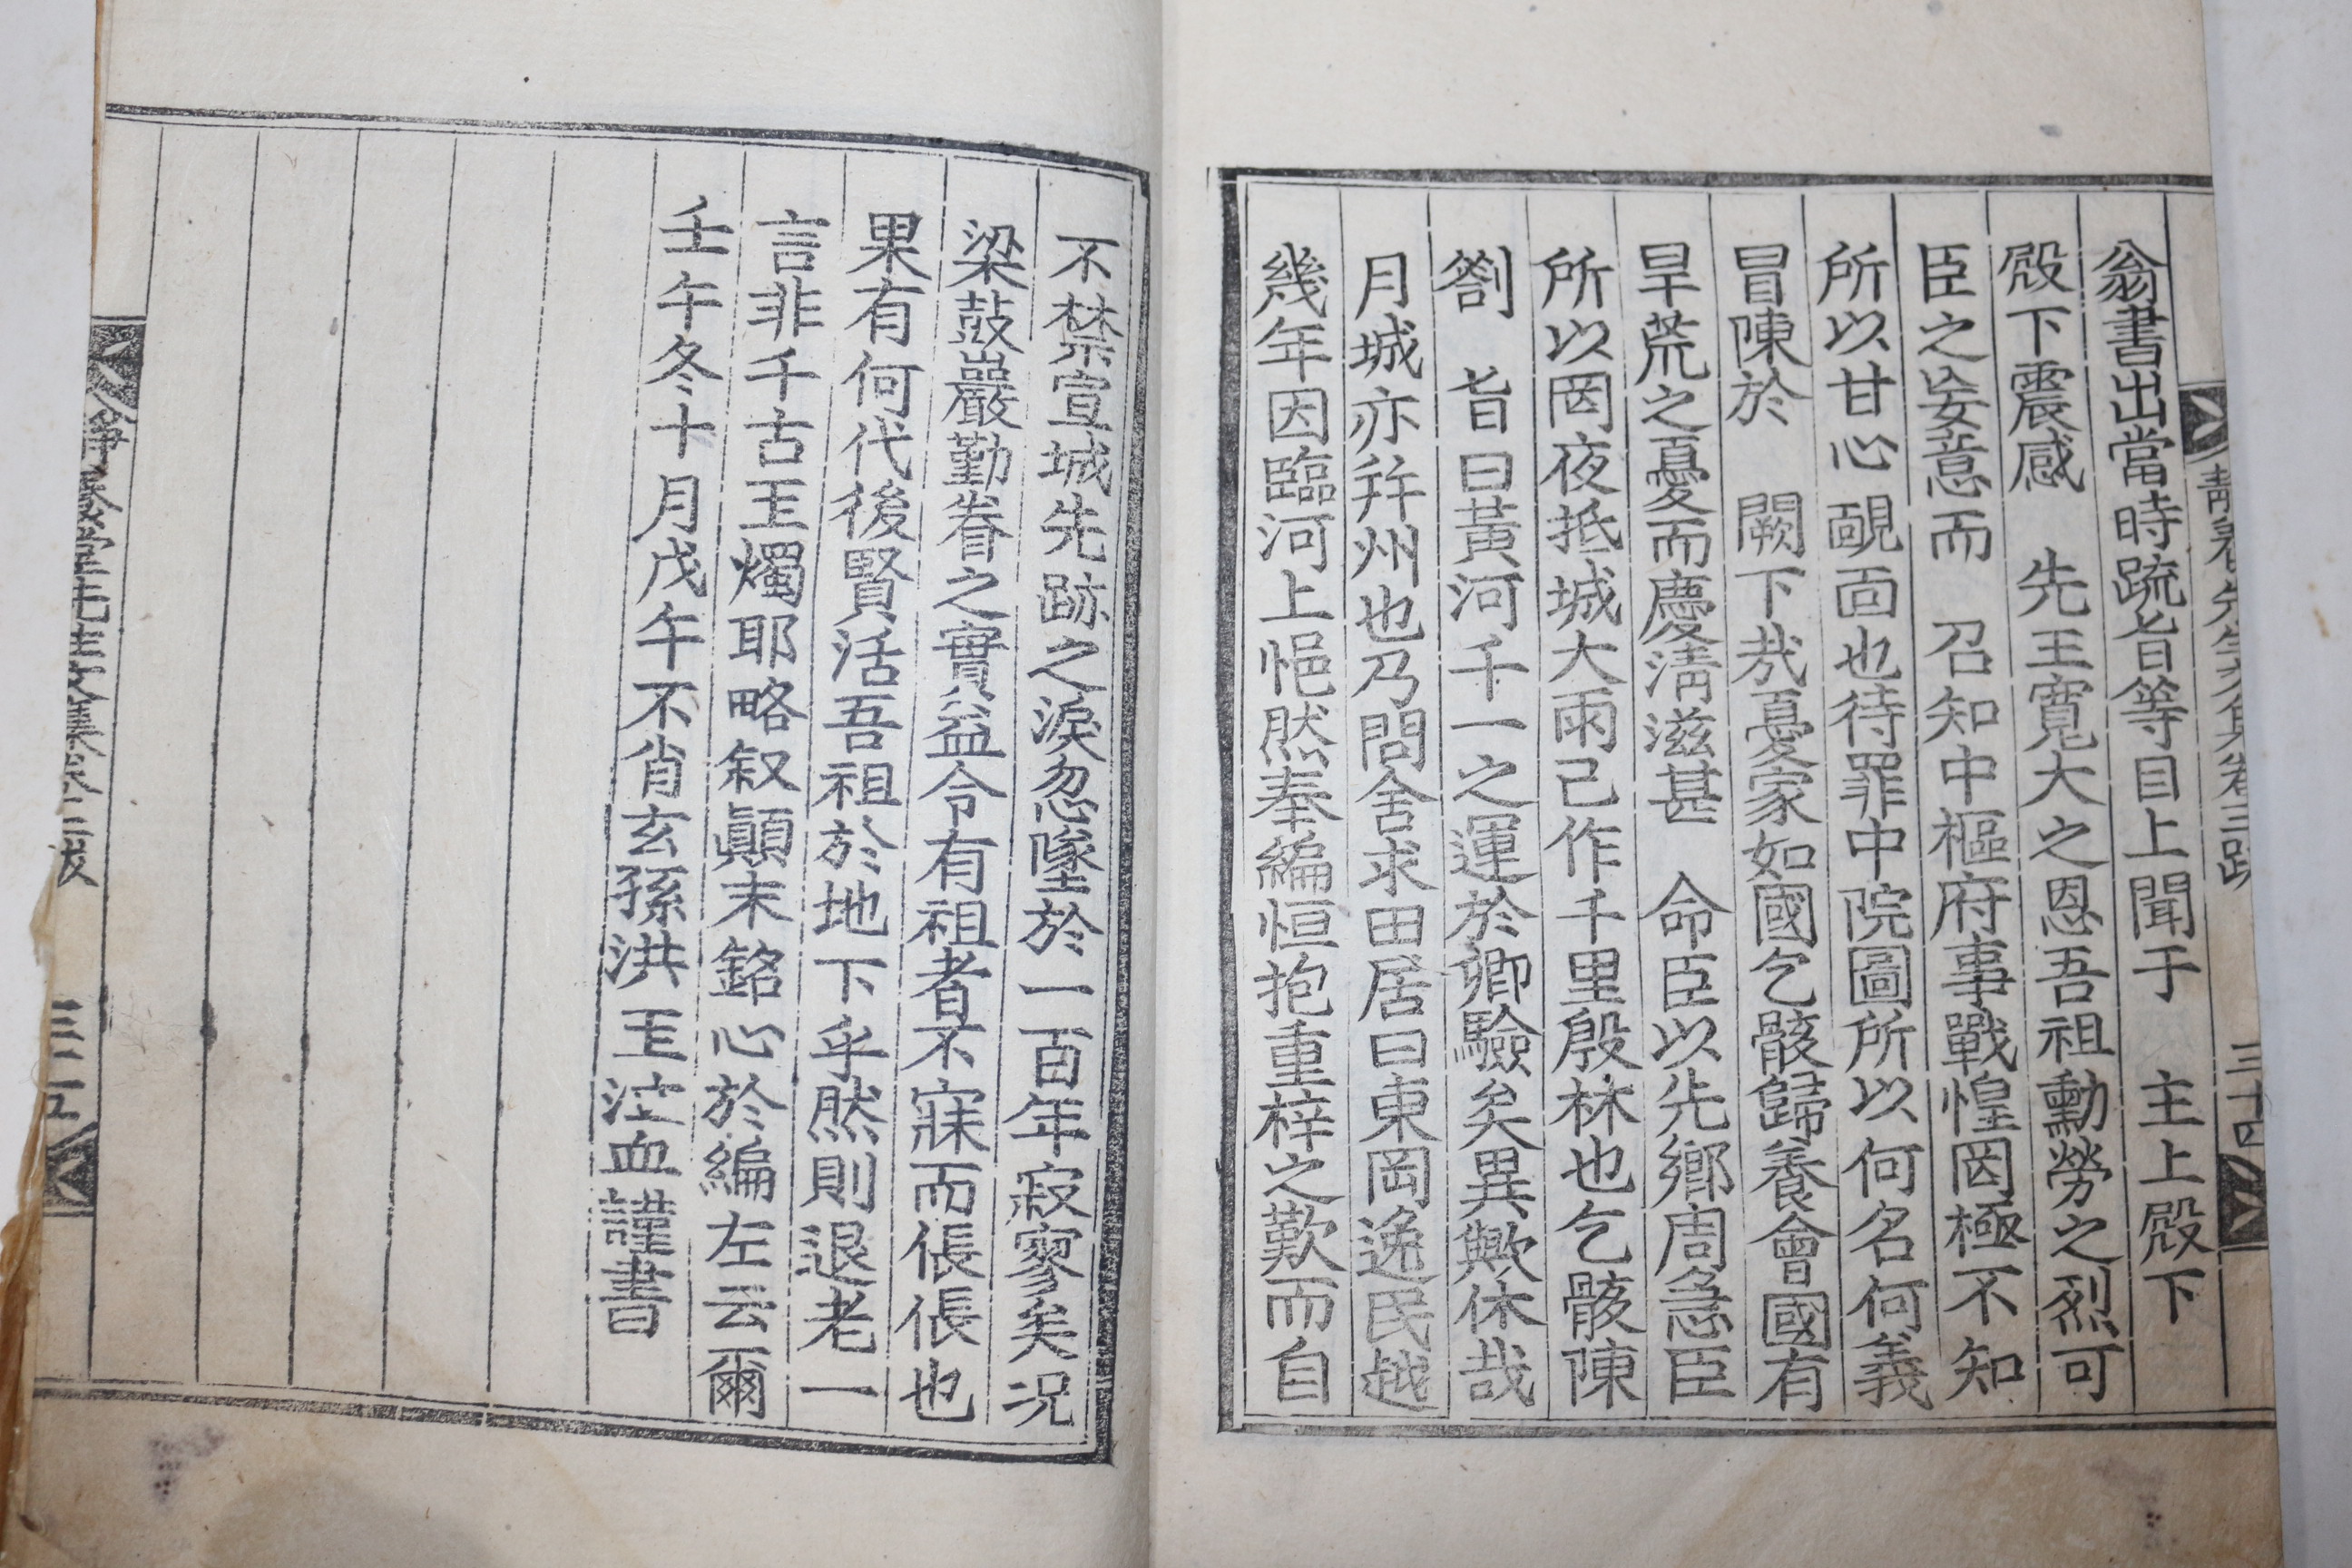 翁書出當時疏旨等目上聞于　主上殿下
殿下震感　先王寬大之恩吾祖勳勞之烈可
臣之妄意而　召知中樞府事戰惶罔極不知
所以甘心靦面也待罪中院圖所以何名何義
冒陳於　闕下哉憂家如國乞骸歸養會國有
旱荒之憂而慶淸滋甚　命臣以先鄉周急臣
所以罔夜抵城大雨已作千里殷林也乞骸陳
劄　旨曰黃河千一之運於卿驗矣異歟休哉
月城亦幷州也乃問舍求田居曰東岡逸民越
幾年因臨河上悒然奉編恒抱重梓之歎而自
不禁宣城先跡之淚忽墜於一百年寂寥矣況
梁鼓巖勤眷之實益令有祖者不寐而倀倀也
果有何代後賢活吾祖於地下乎然則退老一
言非千古玉燭耶略叙顚末銘心於編左云爾
壬午冬十月戊午不肖玄孫洪　玉泣血謹書
卷三跋
三十四